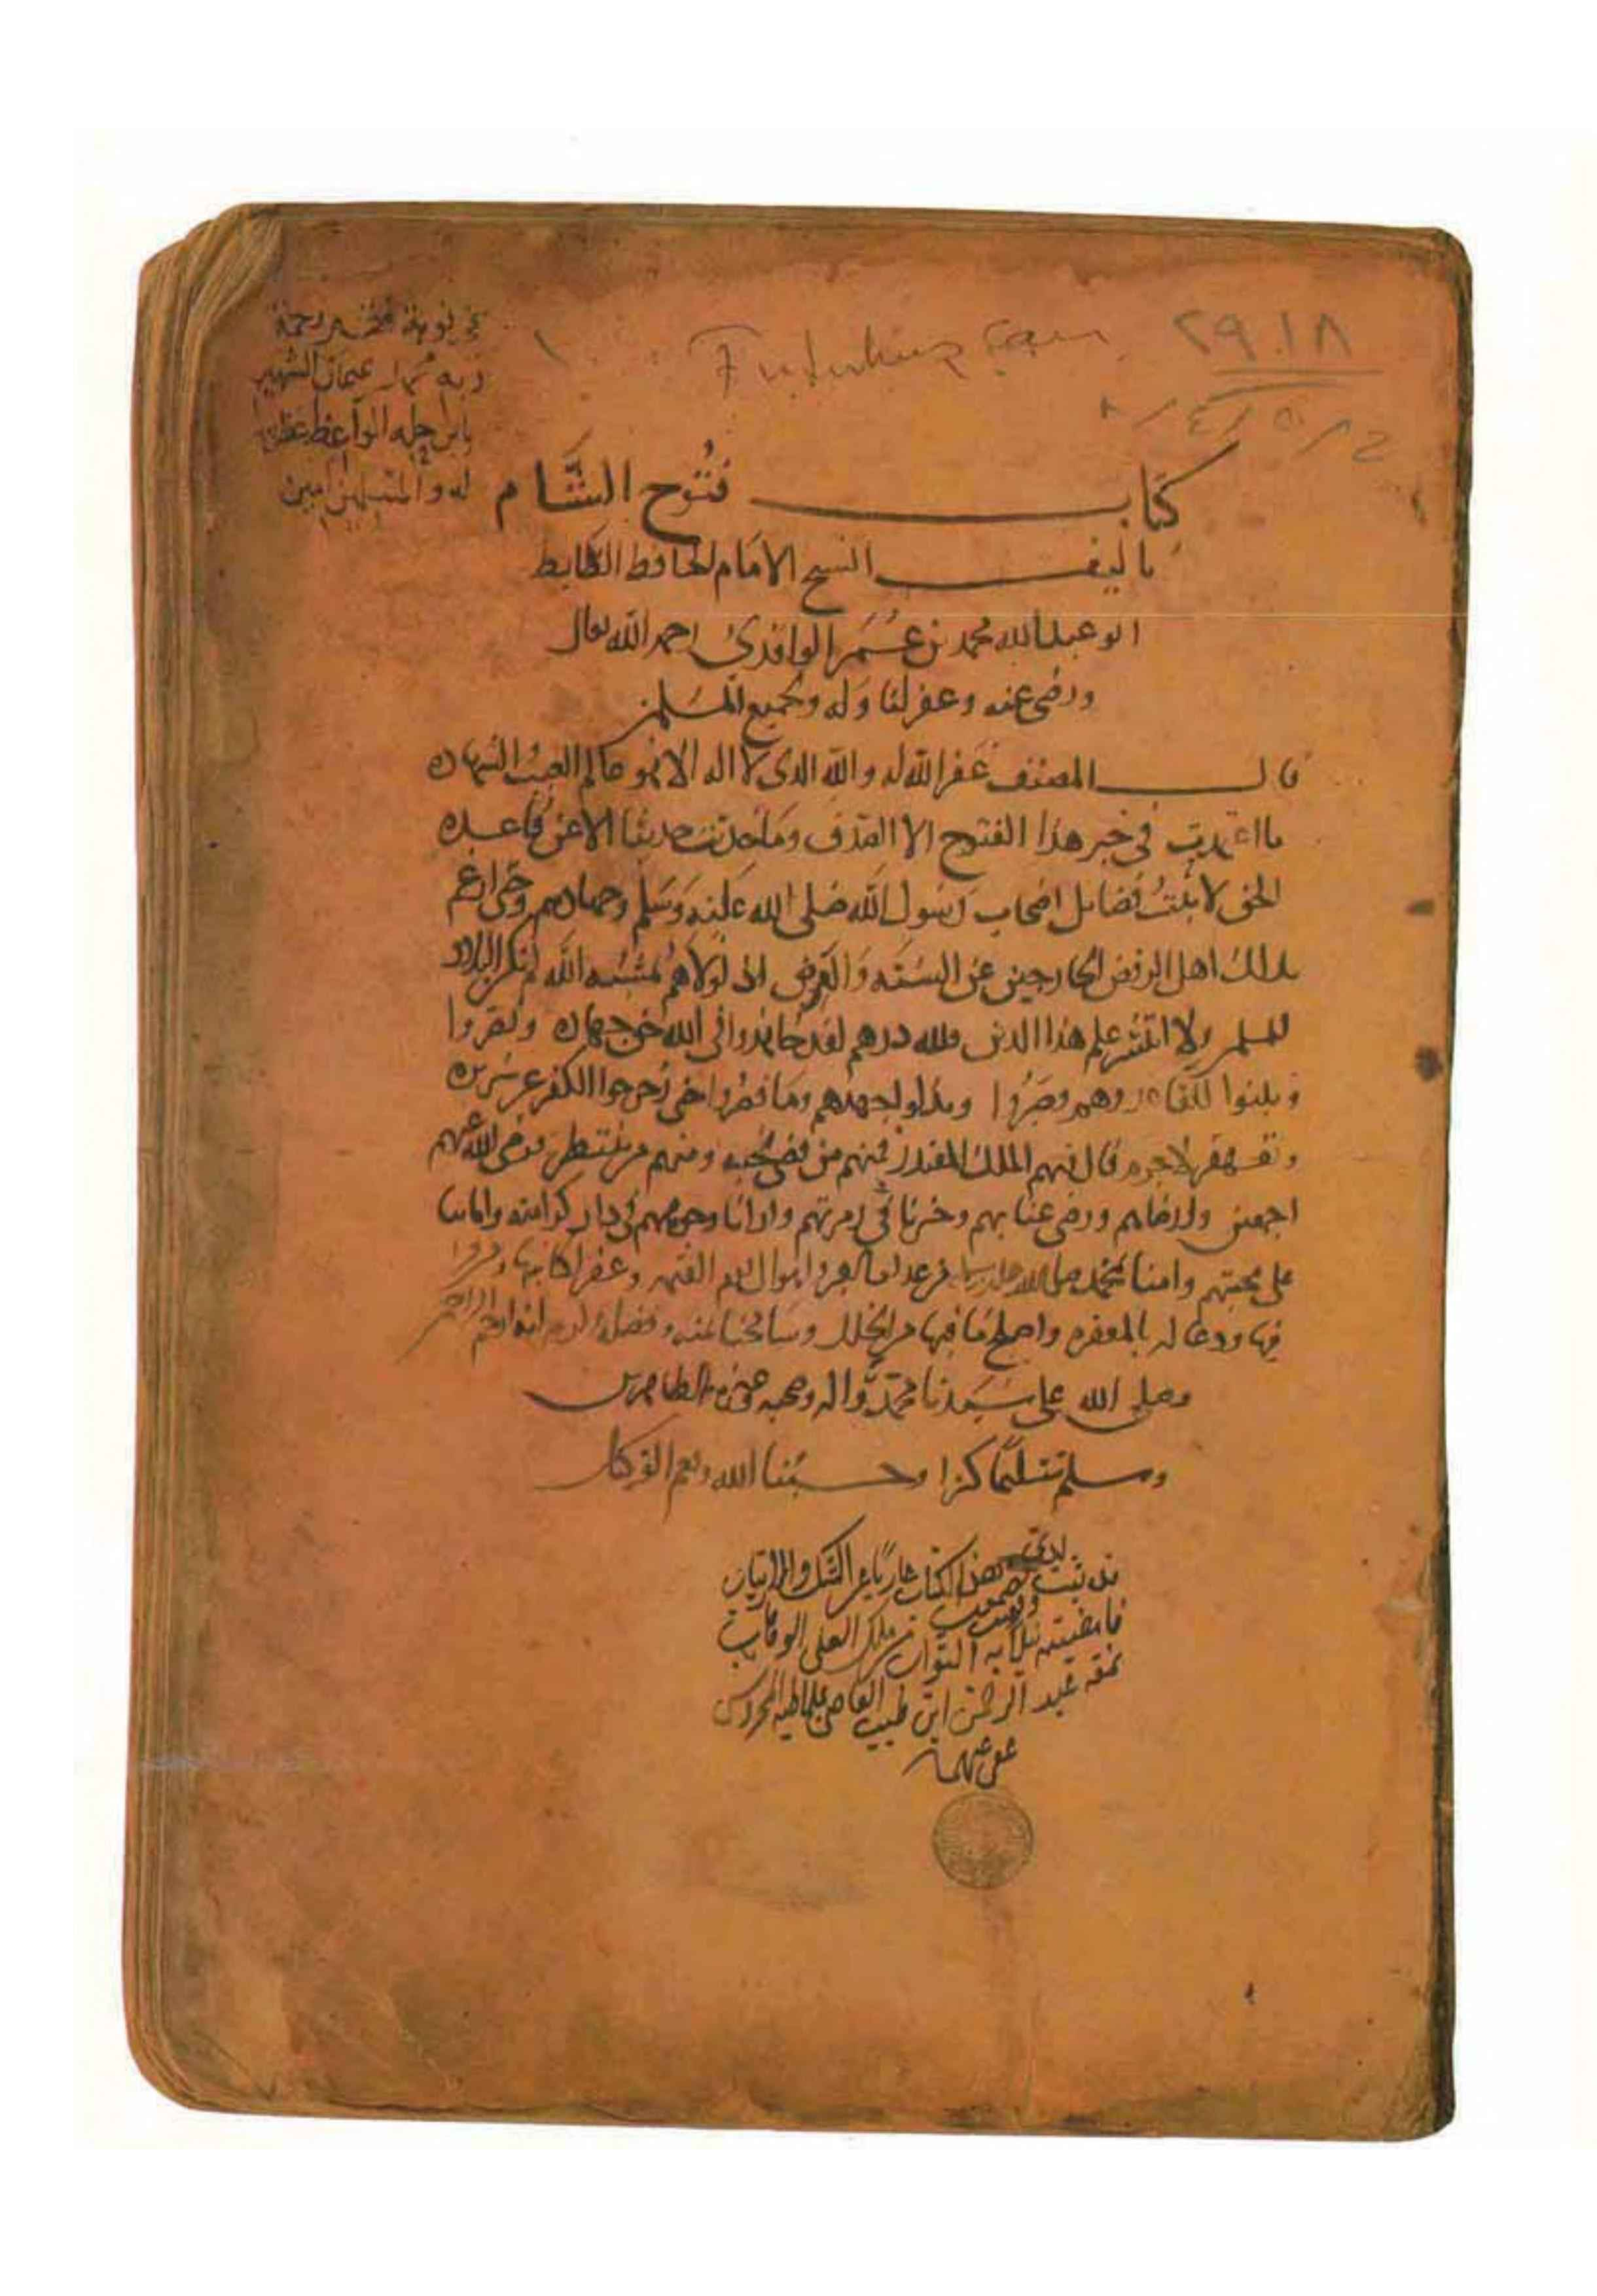 ٢٩٠١٨
Futuhuş Şam
في نوبة فقير رحمة
ربه محمد عثمان الشهير
بابن الواعظ
له وللمسلمين امين
كتاب فتوح الشام
تاليف الشيخ الامام الحافظ الضابط
ابو عبد الله محمد بن عمر الواقدي رحمه الله تعالى
ورضي عنه وغفر لنا وله ولجميع المسلمين
قال المصنف غفر الله له والله الذي لا اله الا هو عالم الغيب والشهادة
ما اعتمدت في خبر هذا الفتوح الا الصدق وما حديثنا الا عن قاعدة
الحق لاثبت فضايل اصحاب رسول الله صلى الله عليه وسلم وجهادهم حتى ارغم
بذلك اهل الرفض الخارجين عن السنة والفرض اذ لولاهم بمشيئة الله لم تكن البلاد
للمسلمين ولا انتشر علم هذا الدين فلله درهم لقد جاهدوا في الله حق جهاده ونصروا
وثبتوا للقاء عدوهم وصبروا وبذلوا جهدهم وما قصروا حتى زحزحوا الكفر عن سريره
وتقهقر لا جرم قال فيهم الملك المقتدر فمنهم من قضى نحبه ومنهم من ينتظر رضي الله عنهم
اجمعين وارضاهم ورضي عنا بهم وحشرنا في زمرتهم وارانا وجوههم في دار كرامته واماتنا
على محبتهم وامنا بمحمد صلى الله عليه وسلم من اهوال يوم القيمة وغفر لكاتبها وقرا
فيها ودعا له بالمغفرة واصلح ما فيها من الخلل وسامحنا بمنه وفضله انه ارحم الراحمين
وصلى الله على سيدنا محمد واله وصحبه الطاهرين
وسلم تسليما كثيرا وحسبنا الله ونعم الوكيل
قد ثبت لدي هذا الكتاب عاريا عن الشك والارتياب
فامضيته نيلا به الثواب من ملك العلى الوهاب
نمقه عبد الرحمن ابن طبيب القاضي بملاطيه المحروس
عفي عنهما